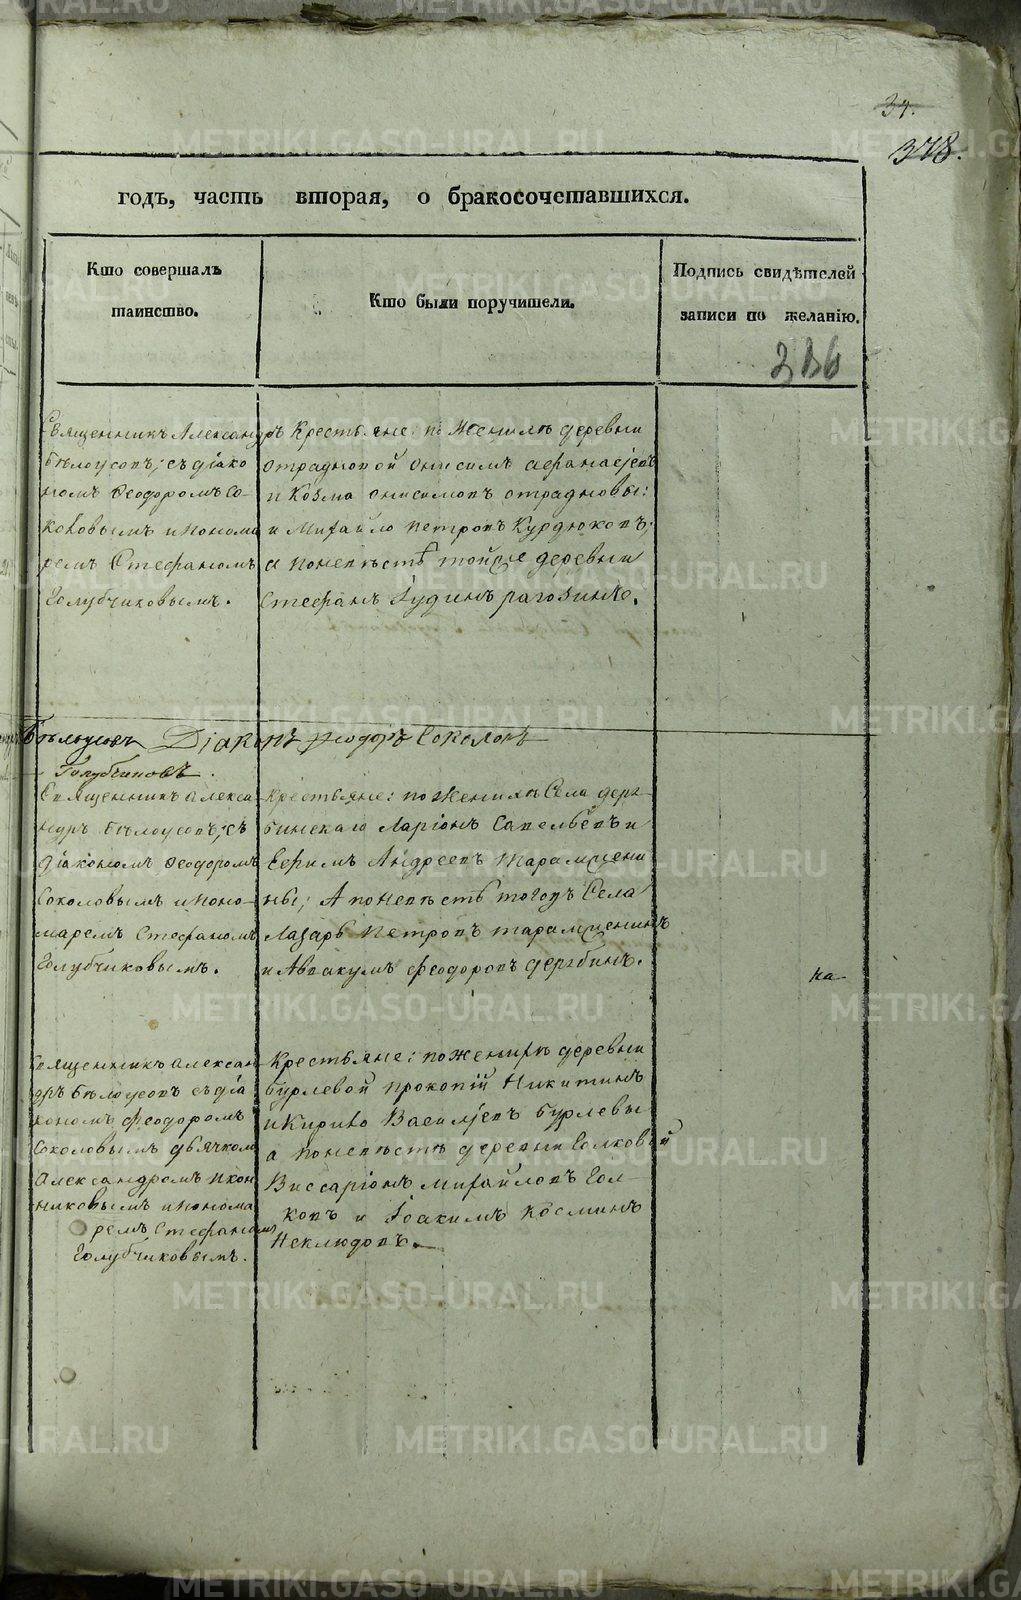 34.
378.
годъ, часть вторая, о бракосочетавшихся.
Кто совершалъ
таинство.
Кто были поручители.
Подпись свидѣтелей
записи по желанію.
Священникъ Александръ
Бѣлоусовъ; съ діако
номъ Феодоромъ Со-
коловымъ и понома
ремъ Стефаномъ
Голубчиковымъ.
Крестьяне: по женихѣ деревни
Отрадновой Онисимъ Афанасьевъ
и Козма Онисимовъ Отрадновы:
и Михайло Петровъ Курдюковъ;
а по невѣстѣ тойже деревни
Стефанъ Іудинъ Рагозинъ.
Бѣлоусовъ Діаконъ Феодоръ Соколовъ
Голубчиковъ.
Священникъ Алекса-
ндръ Бѣлоусовъ; съ
діакономъ Феодоромъ
Соколовымъ и поно-
маремъ Стефаномъ
Голубчиковымъ.
Крестьяне: по женихѣ Села
Ларіонъ Савельевъ и
Ефимъ Андреевъ
ны; А по невѣстѣ тогожъ Села
Лазарь Петровъ
и Аввакумъ Феодоровъ
на
Священникъ Алексан
дръ Бѣлоусовъ съ діа
кономъ Феодоромъ
Соколовымъ дьячкомъ
Александромъ Икон
никовымъ и понома
ремъ Стефаномъ
Голубчиковымъ.
Крестьяне: по женихѣ деревни
Бурлевой Прокопій Никитинъ
и Кирило Васильевъ Бурлевы
а по невѣстѣ деревни Волковой
Виссаріонъ Михайловъ Вол-
ковъ и Іоакимъ Косминъ
Неклюдовъ.
METRIKI.GASO-URAL.RU